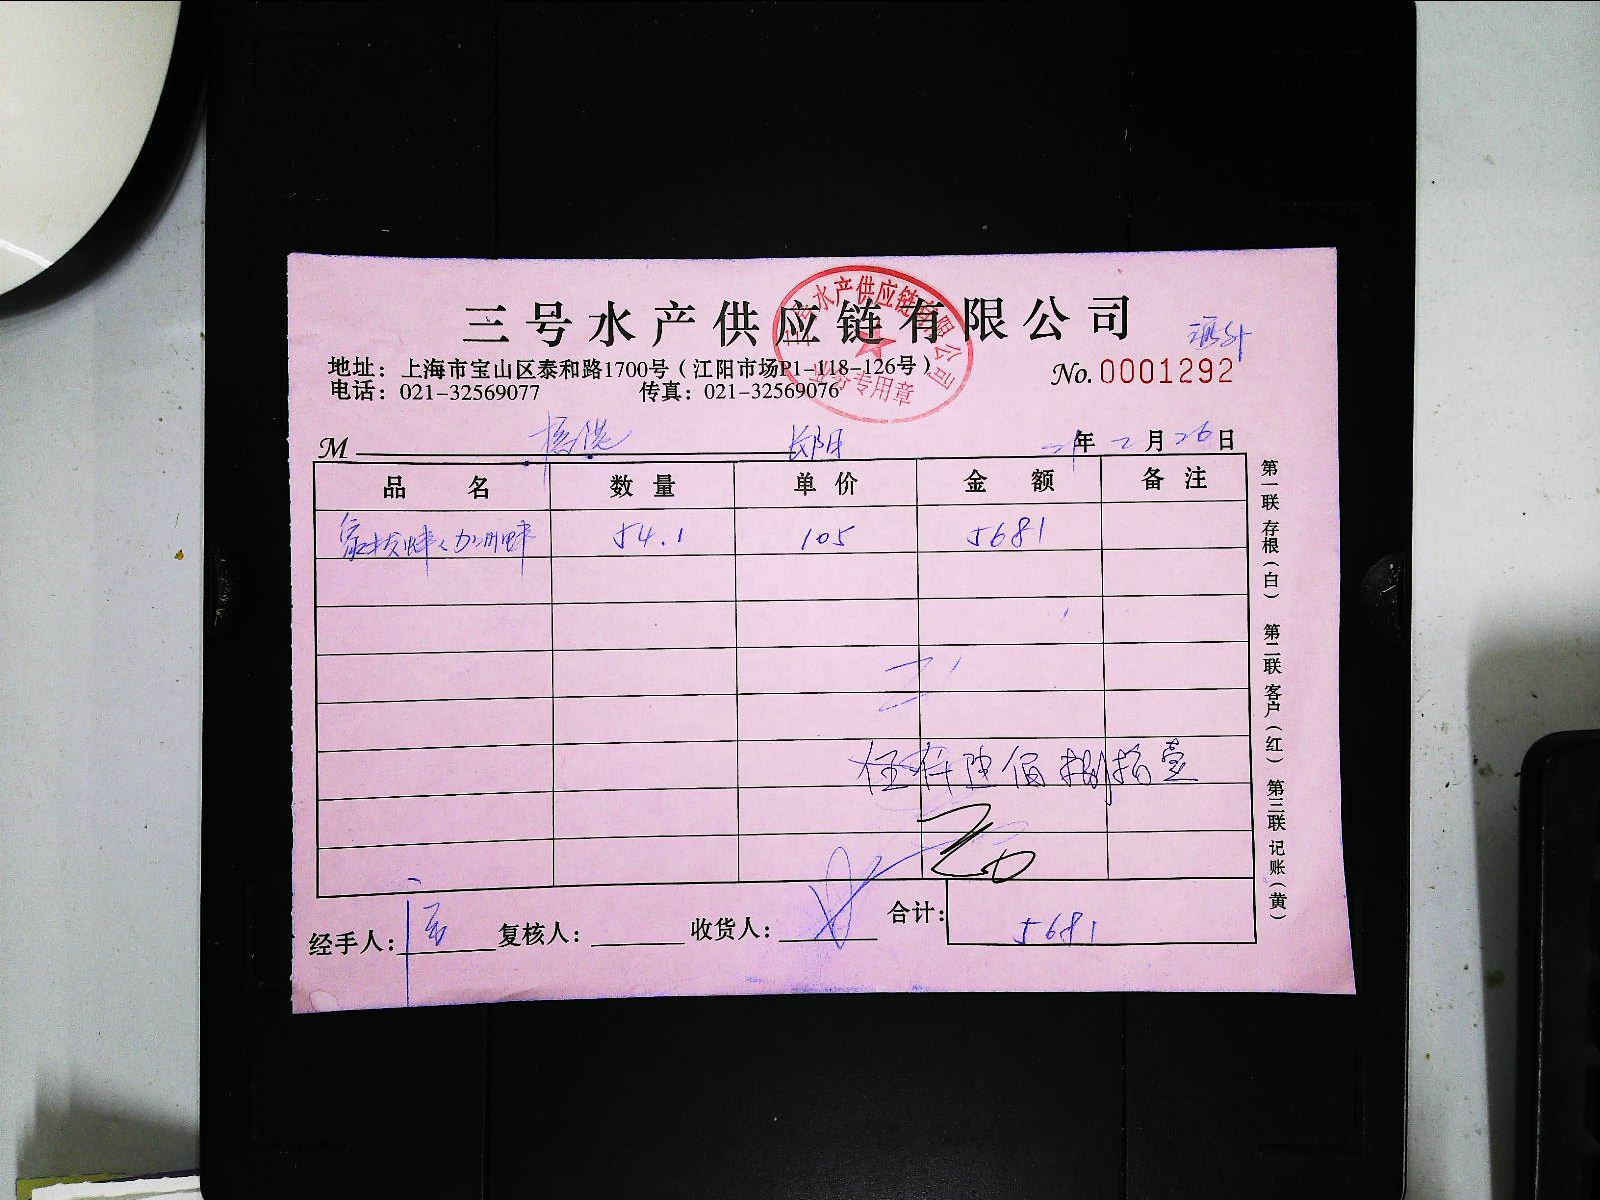 三号水产供应链有限公司
地址：上海市宝山区泰和路1700号（江阳市场P1-118-126号）
No. 0001292
电话：021-32569077 传真：021-32569076
三号水产供应链有限公司
业务专用章
M 年 二月26日
品名 数量 单价 金额 备注
54.1 105 5681
伍仟陆佰捌拾壹
经手人： 复核人： 收货人： 合计： 5681
第一联 存根（白） 第二联 客户（红） 第三联 记账（黄）